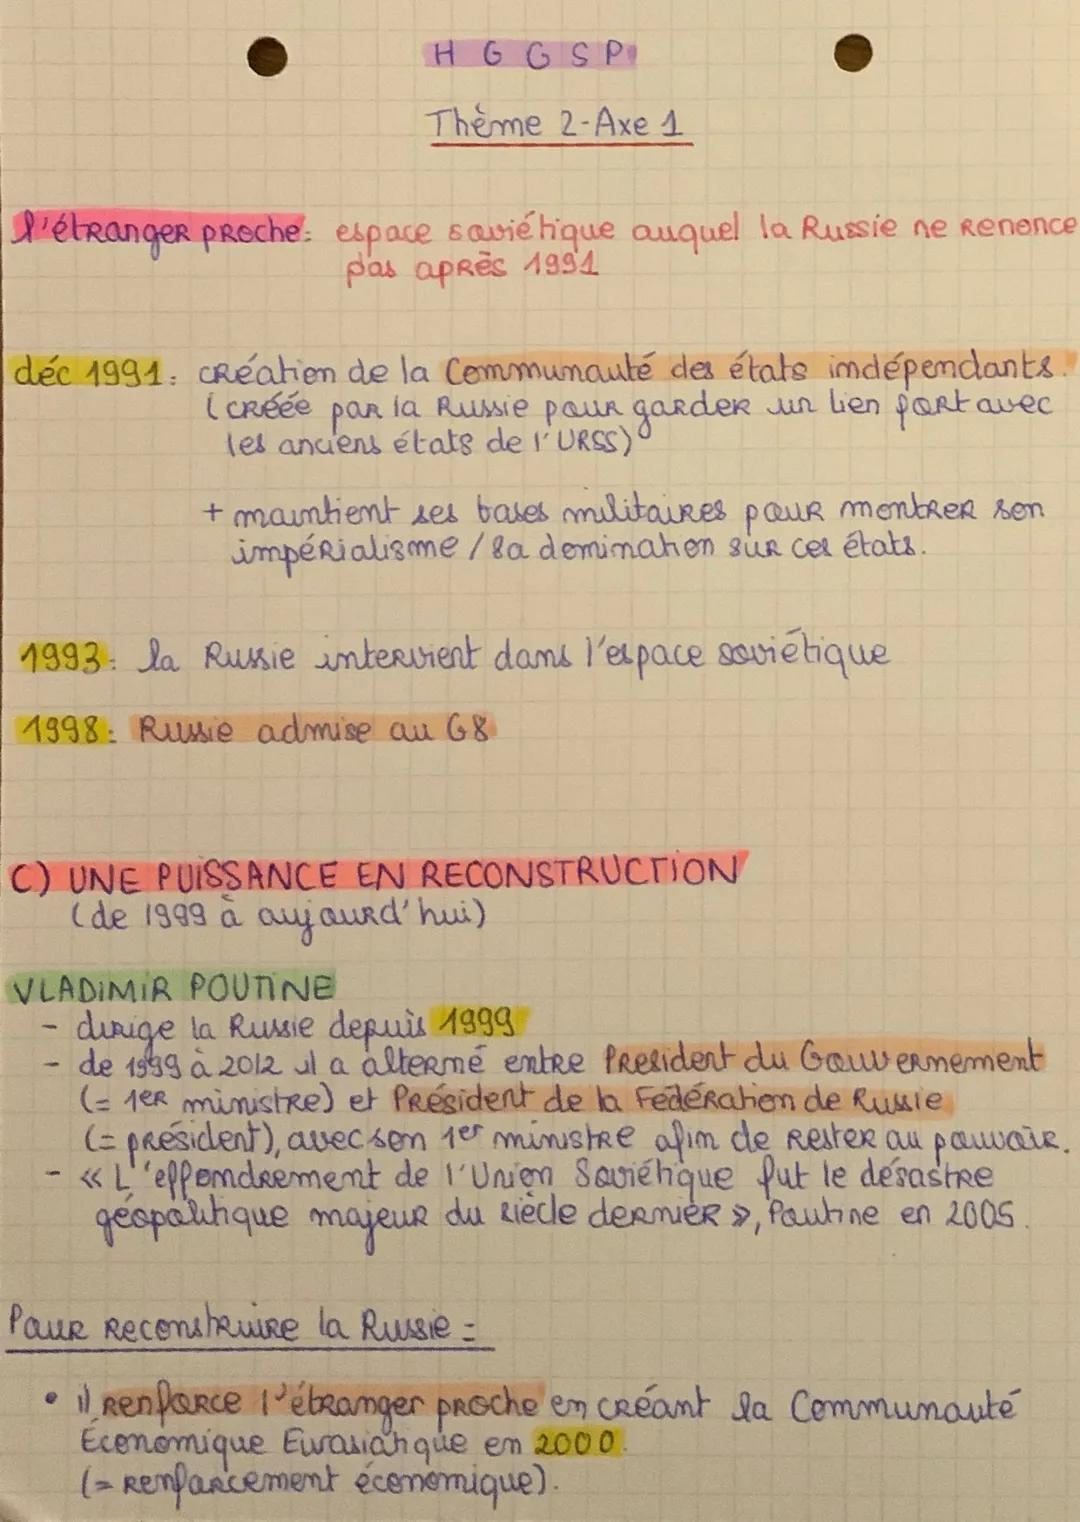 H G G S P
Thème 2-Axe 1
l'étranger proche: espace soviétique auquel la Russie ne renonce
pas après 1991
déc 1991: création de la Communauté des états indépendants.
(créée par la Russie pour garder un lien fort avec
les anciens états de l'URSS)
+ maintient ses bases militaires pour montrer son
impérialisme / sa domination sur ces états.
1993: la Russie intervient dans l'espace soviétique
1998: Russie admise au G8
C) UNE PUISSANCE EN RECONSTRUCTION
(de 1999 à aujourd'hui)
VLADIMIR POUTINE
- dirige la Russie depuis 1999
- de 1999 à 2012 il a alterné entre Président du Gouvernement
(= 1er ministre) et Président de la Fédération de Russie
(= président), avec son 1er ministre afin de rester au pouvoir.
- « L'effondrement de l'Union Soviétique fut le désastre
géopolitique majeur du siècle dernier », Poutine en 2005.
Pour reconstruire la Russie =
• il renforce l'étranger proche en créant la Communauté
Économique Eurasiatique en 2000.
(= renforcement économique).